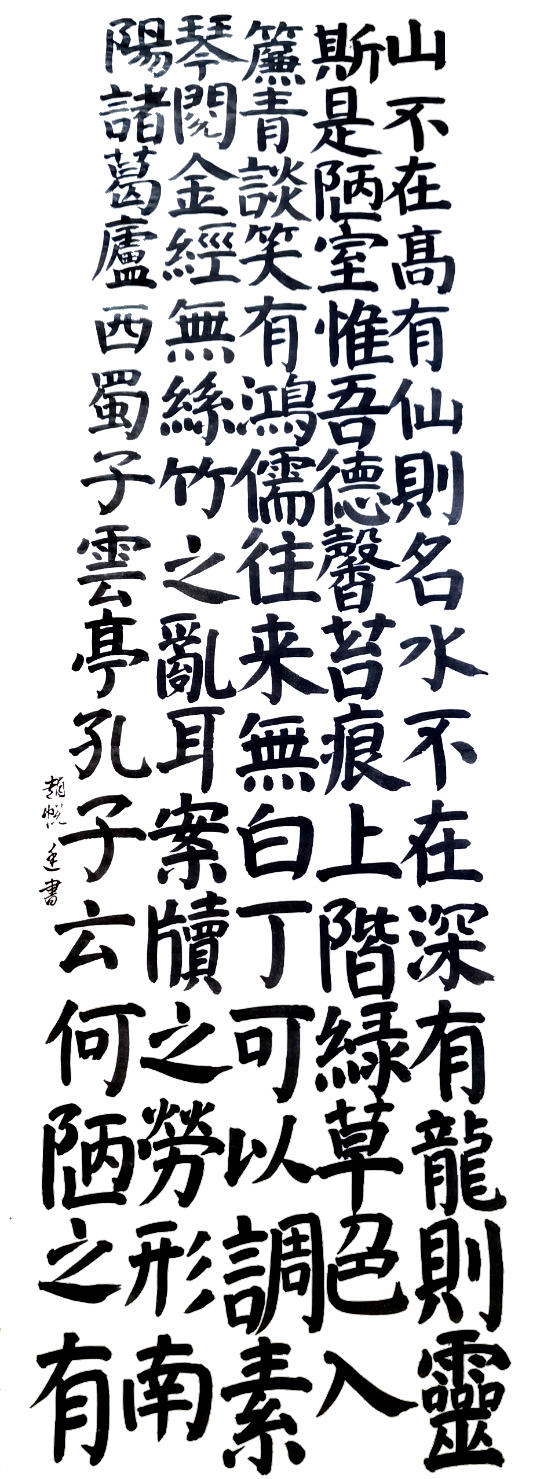 山不在高有仙則名水不在深有龍則靈
斯是陋室惟吾德馨苔痕上階緑草色入
簾青談笑有鴻儒往来無白丁可以調素
琴閱金經無絲竹之亂耳案牘之勞形南
陽諸葛廬西蜀子雲亭孔子云何陋之有
趙悅廷書